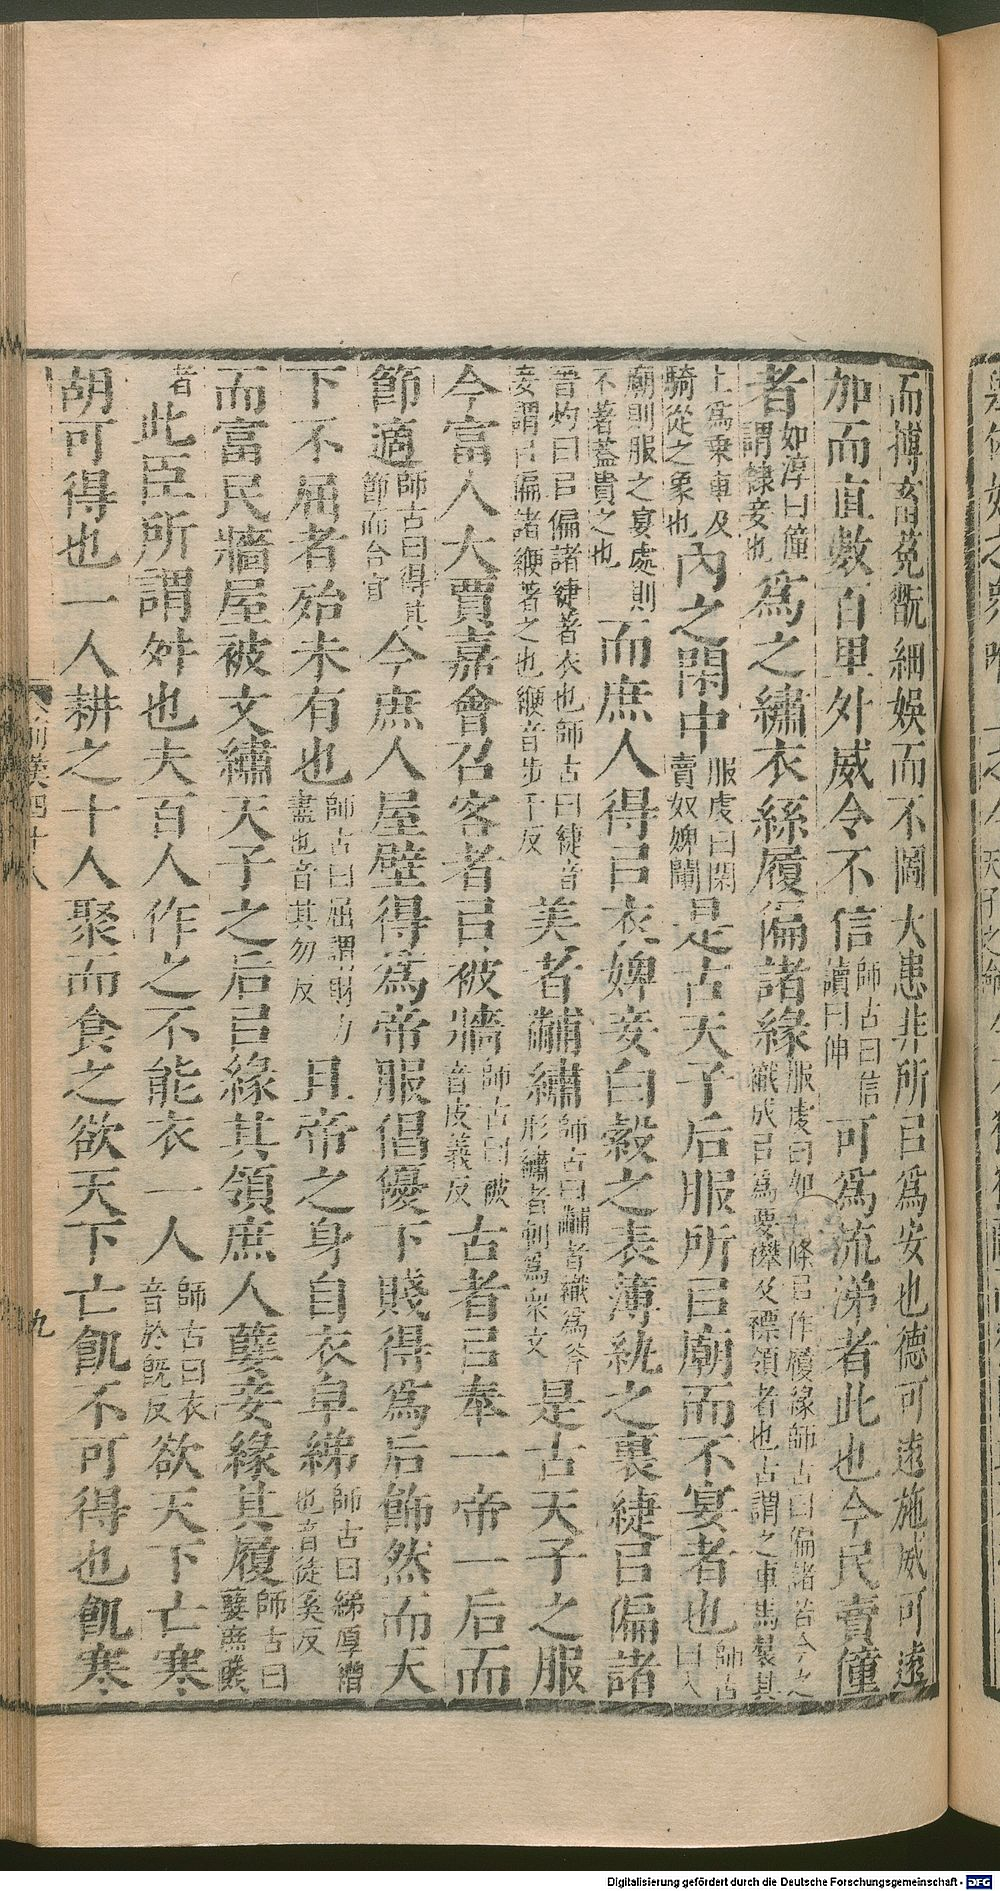 而搏畜菟翫細娛而不圖大患非所㠯為安也德可遠施威可遠
加而直數百里外威令不信師古曰信讀曰伸可為流涕者此也今民賣僮
者如淳曰僮謂隸妾也為之繡衣絲履偏諸緣服虔曰如牙條㠯作履緣師古曰偏諸若今之織成㠯為要襻及褾領者也古謂之車馬裠其
上為乘車及騎從之象也內之閑中服虔曰閑賣奴婢闌是古天子后服所㠯廟而不宴者也師古曰入
廟則服之宴處則不著蓋貴之也而庶人得㠯衣婢妾白縠之表薄紈之裏緁㠯偏諸
晉灼曰㠯偏諸緁著衣也師古曰緁音妾謂㠯偏諸緶著之也緶音步千反美者黼繡師古曰黼者織為斧形繡者刺為衆文是古天子之服
今富人大賈嘉會召客者㠯被牆師古曰被音皮義反古者㠯奉一帝一后而
節適師古曰得其節而合宜今庶人屋壁得為帝服倡優下賤得為后飾然而天
下不屈者殆未有也師古曰屈謂財力盡也音其勿反且帝之身自衣皁綈師古曰綈厚繒也音徒奚反
而富民牆屋被文繡天子之后㠯緣其領庶人孽妾緣其履師古曰孽庶賤
者此臣所謂舛也夫百人作之不能衣一人師古曰衣音於既反欲天下亡寒
胡可得也一人耕之十人聚而食之欲天下亡飢不可得也飢寒
前漢四十八
九
Digitalisierung gefördert durch die Deutsche Forschungsgemeinschaft - DFG